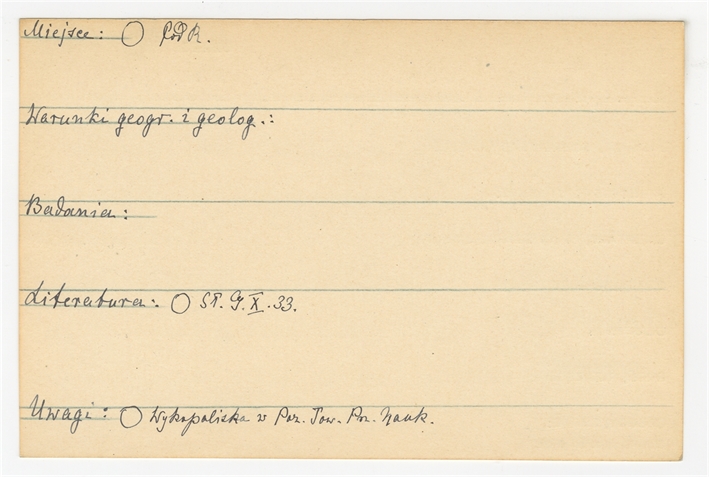 Miejsce: ○ PodR.
Warunki geogr. i geolog.:
Badania:
Literatura: ○ ST. G. X. 33.
Uwagi: ○ Wykopaliska w Poz. Tow. Prz. Nauk.